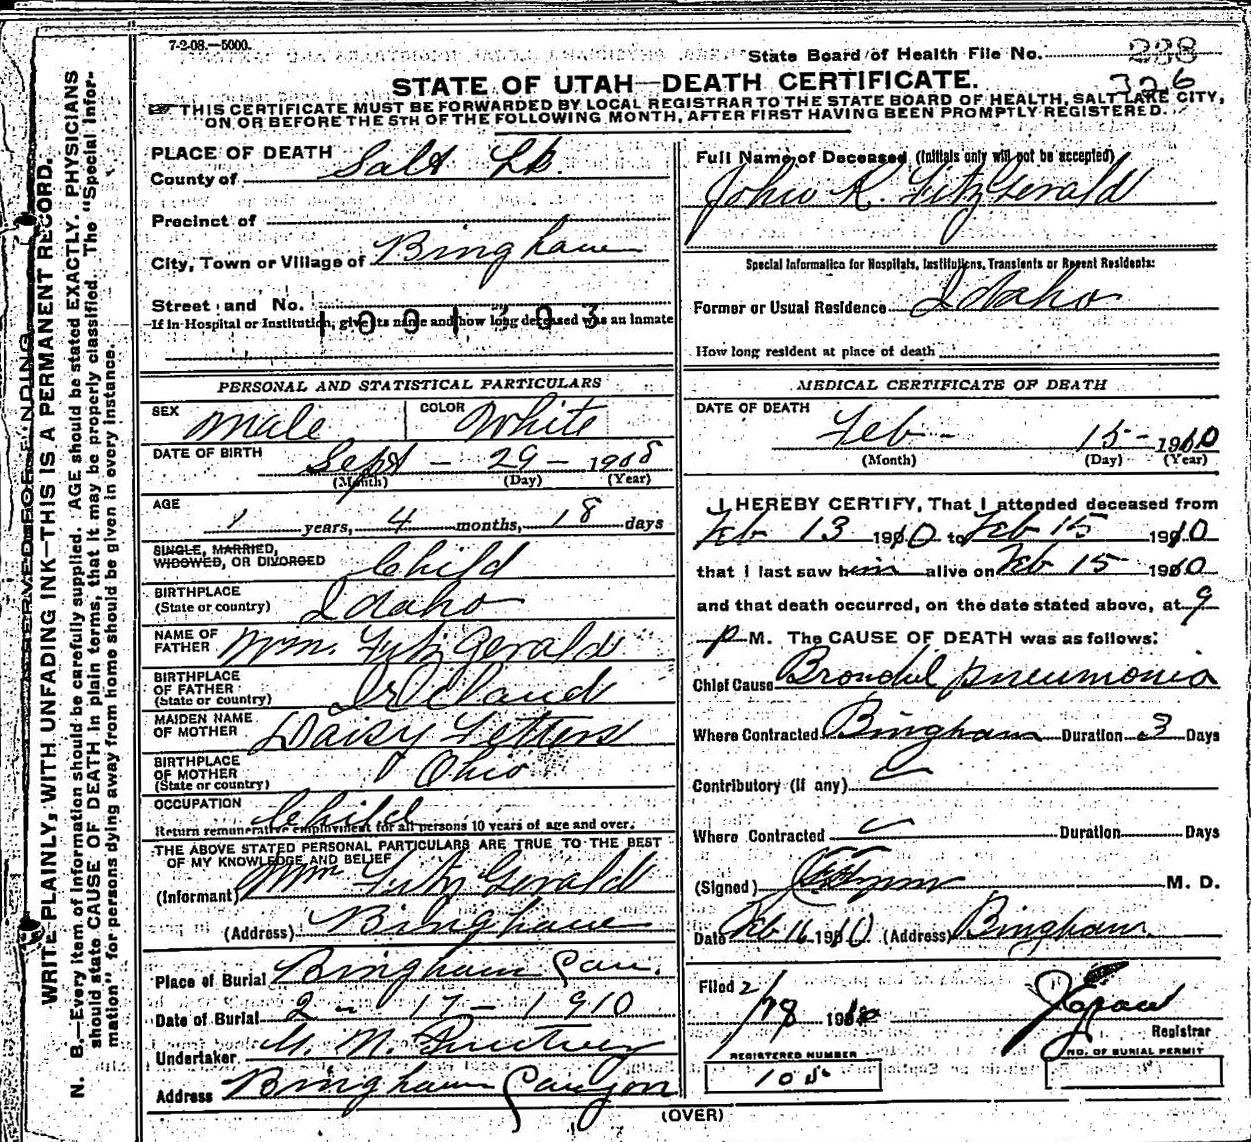 7-2-08.—5000.
State Board of Health File No. 288
326
STATE OF UTAH—DEATH CERTIFICATE.
THIS CERTIFICATE MUST BE FORWARDED BY LOCAL REGISTRAR TO THE STATE BOARD OF HEALTH, SALT LAKE CITY,
ON OR BEFORE THE 5TH OF THE FOLLOWING MONTH, AFTER FIRST HAVING BEEN PROMPTLY REGISTERED.
WRITE PLAINLY, WITH UNFADING INK—THIS IS A PERMANENT RECORD.
N. B.—Every item of information should be carefully supplied. AGE should be stated EXACTLY. PHYSICIANS
should state CAUSE OF DEATH in plain terms, that it may be properly classified. The "Special Infor-
mation" for persons dying away from home should be given in every instance.
PLACE OF DEATH
County of Salt Lk.
Precinct of
City, Town or Village of Bingham
Street and No.
If in Hospital or Institution, give its name and how long deceased was an inmate
PERSONAL AND STATISTICAL PARTICULARS
SEX Male COLOR White
DATE OF BIRTH Sept - 29 - 1908
(Month) (Day) (Year)
AGE 1 years, 4 months, 18 days
SINGLE, MARRIED,
WIDOWED, OR DIVORCED Child
BIRTHPLACE
(State or country) Idaho
NAME OF
FATHER Wm. FitzGerald
BIRTHPLACE
OF FATHER
(State or country) Ireland
MAIDEN NAME
OF MOTHER Daisy Fetters
BIRTHPLACE
OF MOTHER
(State or country) Ohio
OCCUPATION Child
Return remunerative employment for all persons 10 years of age and over.
THE ABOVE STATED PERSONAL PARTICULARS ARE TRUE TO THE BEST
OF MY KNOWLEDGE AND BELIEF
(Informant) Wm FitzGerald
(Address) Bingham
Place of Burial Bingham Can.
Date of Burial 2 - 17 - 1910
Undertaker M. N.
Address Bingham Canyon
Full Name of Deceased (Initials only will not be accepted)
John R. FitzGerald
Special Information for Hospitals, Institutions, Transients or Recent Residents:
Former or Usual Residence Idaho
How long resident at place of death
MEDICAL CERTIFICATE OF DEATH
DATE OF DEATH
Feb - 15 - 1910
(Month) (Day) (Year)
I HEREBY CERTIFY, That I attended deceased from
Feb 13 1910 to Feb 15 1910
that I last saw him alive on Feb 15 1910
and that death occurred, on the date stated above, at 9
p M. The CAUSE OF DEATH was as follows:
Chief Cause Bronchial pneumonia
Where Contracted Bingham Duration 3 Days
Contributory (if any)
Where Contracted Duration Days
(Signed) M. D.
Date Feb 16 1910 (Address) Bingham.
Filed 2/18 1910
Registrar
REGISTERED NUMBER
NO. OF BURIAL PERMIT
(OVER)